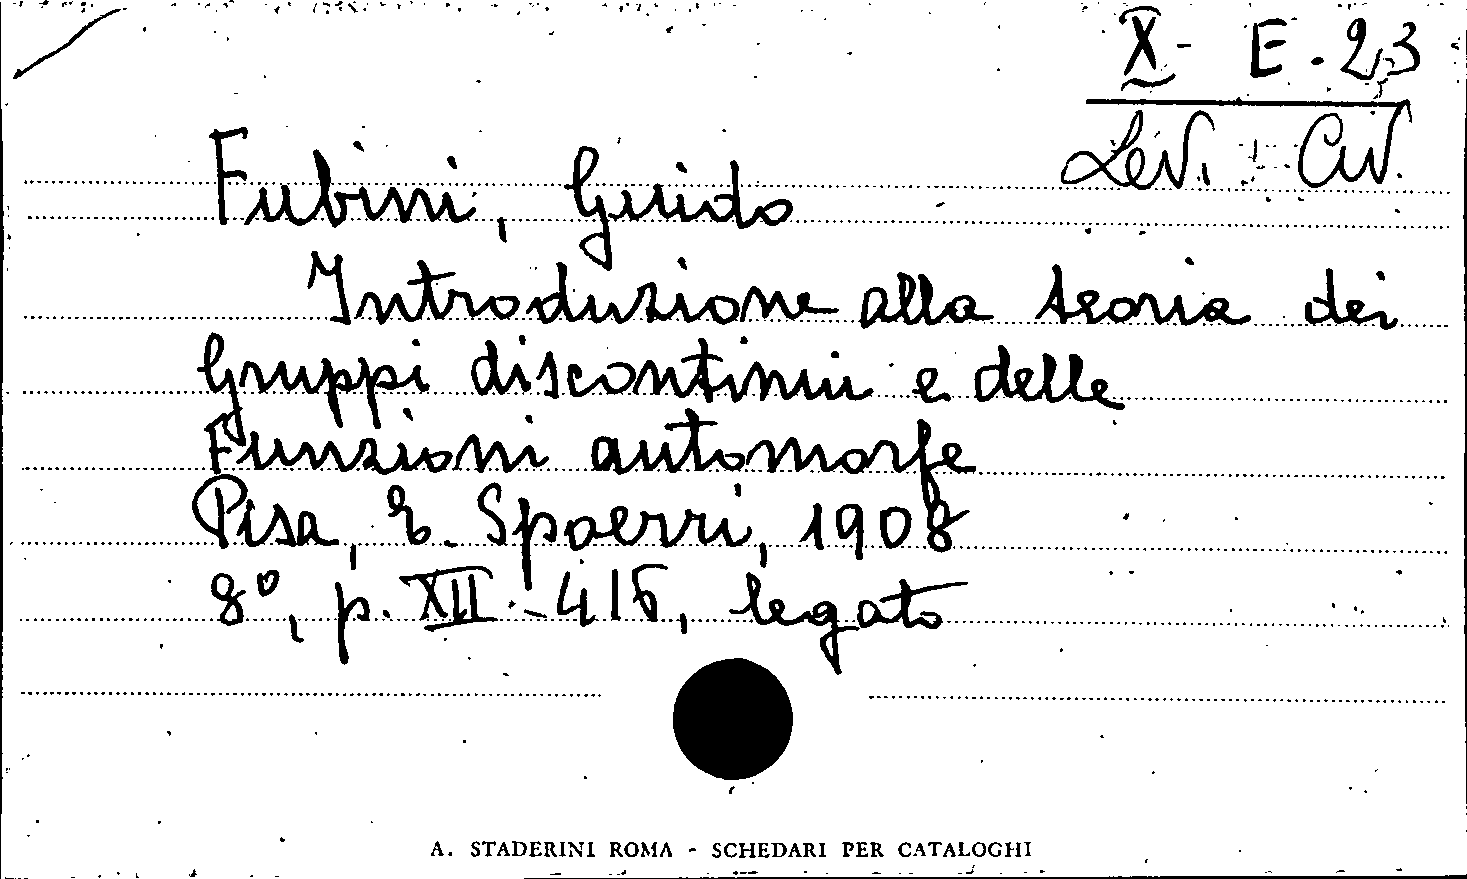 X - E . 23
Lev. - Civ.
Fubini, Guido
Introduzione alla teoria dei
Gruppi discontinui e delle
Funzioni automorfe
Pisa, E. Spoerri, 1908
8º, p. XII - 416, legato
A. STADERINI ROMA - SCHEDARI PER CATALOGHI